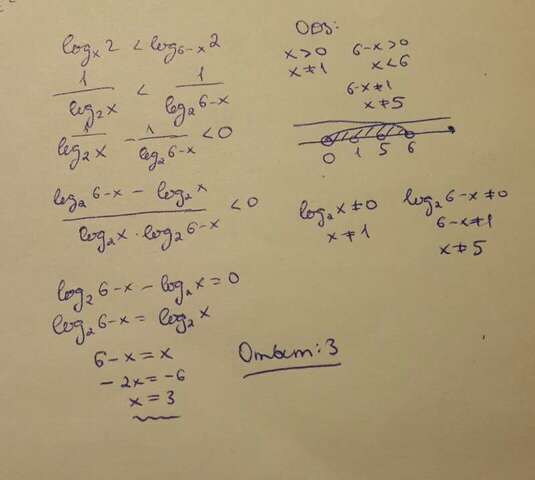 log_x 2 < log_{6-x} 2
1/(log_2 x) < 1/(log_2 6-x)
1/(log_2 x) - 1/(log_2 6-x) < 0
(log_2 6-x - log_2 x)/(log_2 x · log_2 6-x) < 0
log_2 6-x - log_2 x = 0
log_2 6-x = log_2 x
6-x = x
-2x = -6
x = 3
ОДЗ:
x>0 6-x>0
x≠1 x<6
6-x≠1
x≠5
0 1 5 6
log_2 x≠0 log_2 6-x≠0
x≠1 6-x≠1
x≠5
Ответ: 3